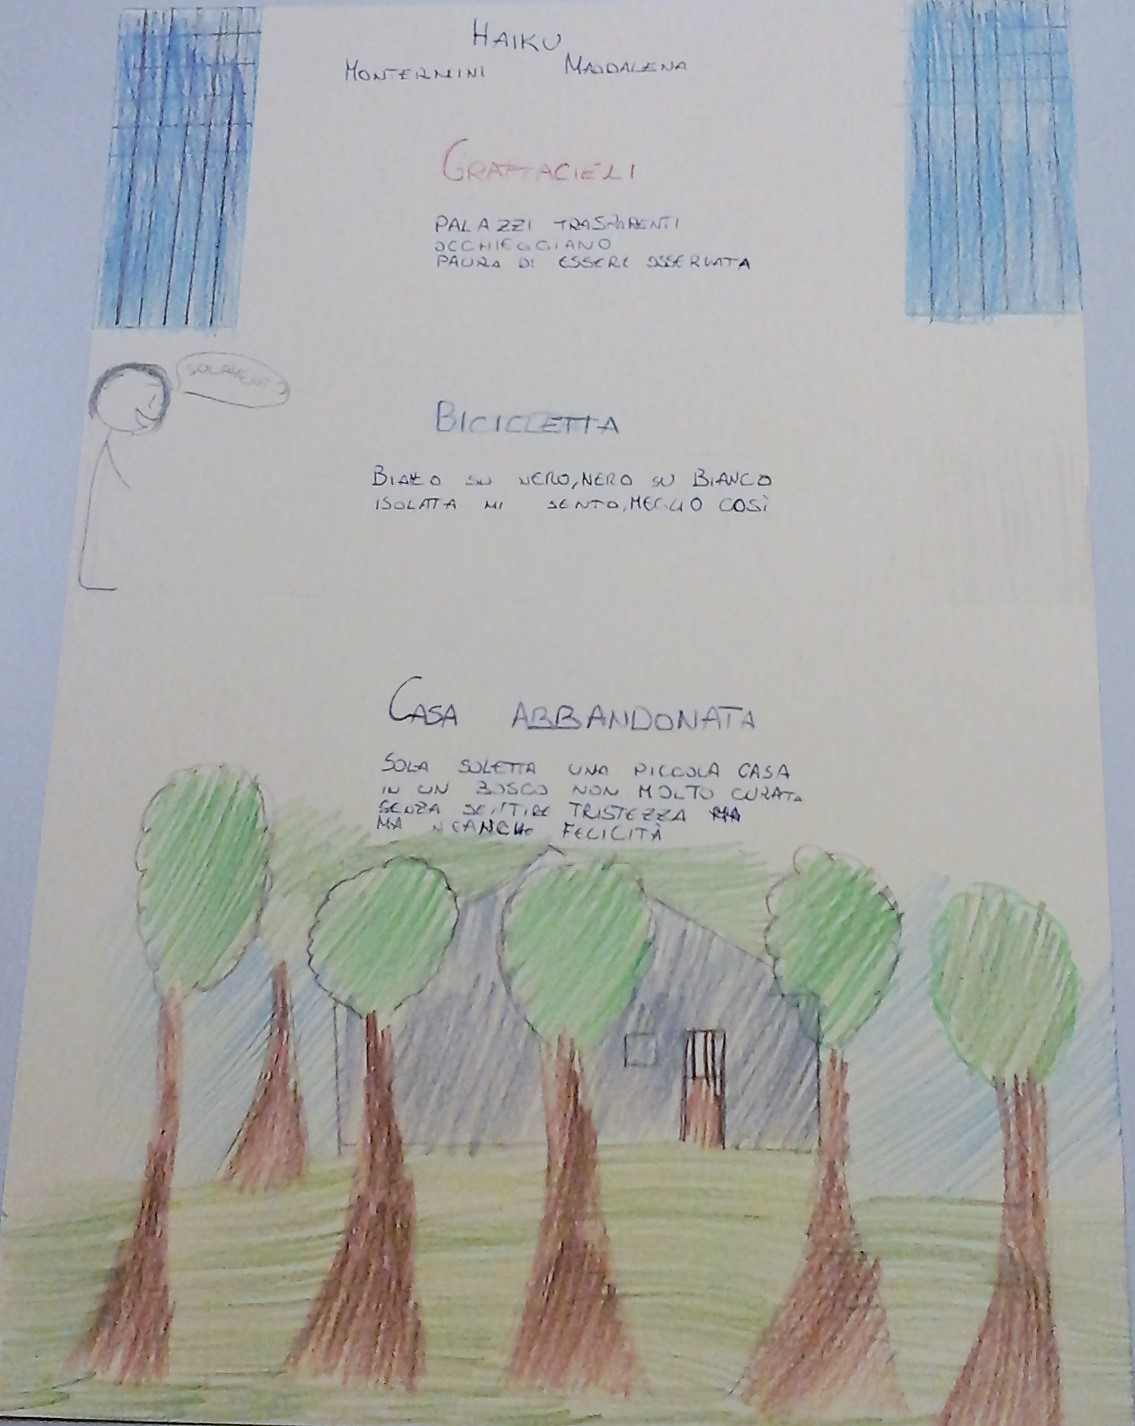 HAIKU
MONTERMINI MADDALENA
GRATTACIELI
PALAZZI TRASPARENTI
OCCHIEGGIANO
PAURA DI ESSERE OSSERVATA
BICICLETTA
BIANCO SU NERO, NERO SU BIANCO
ISOLATA MI SENTO, MEGLIO COSÌ
CASA ABBANDONATA
SOLA SOLETTA UNA PICCOLA CASA
IN UN BOSCO NON MOLTO CURATA
SENZA SENTIRE TRISTEZZA
MA NEANCHE FELICITÀ